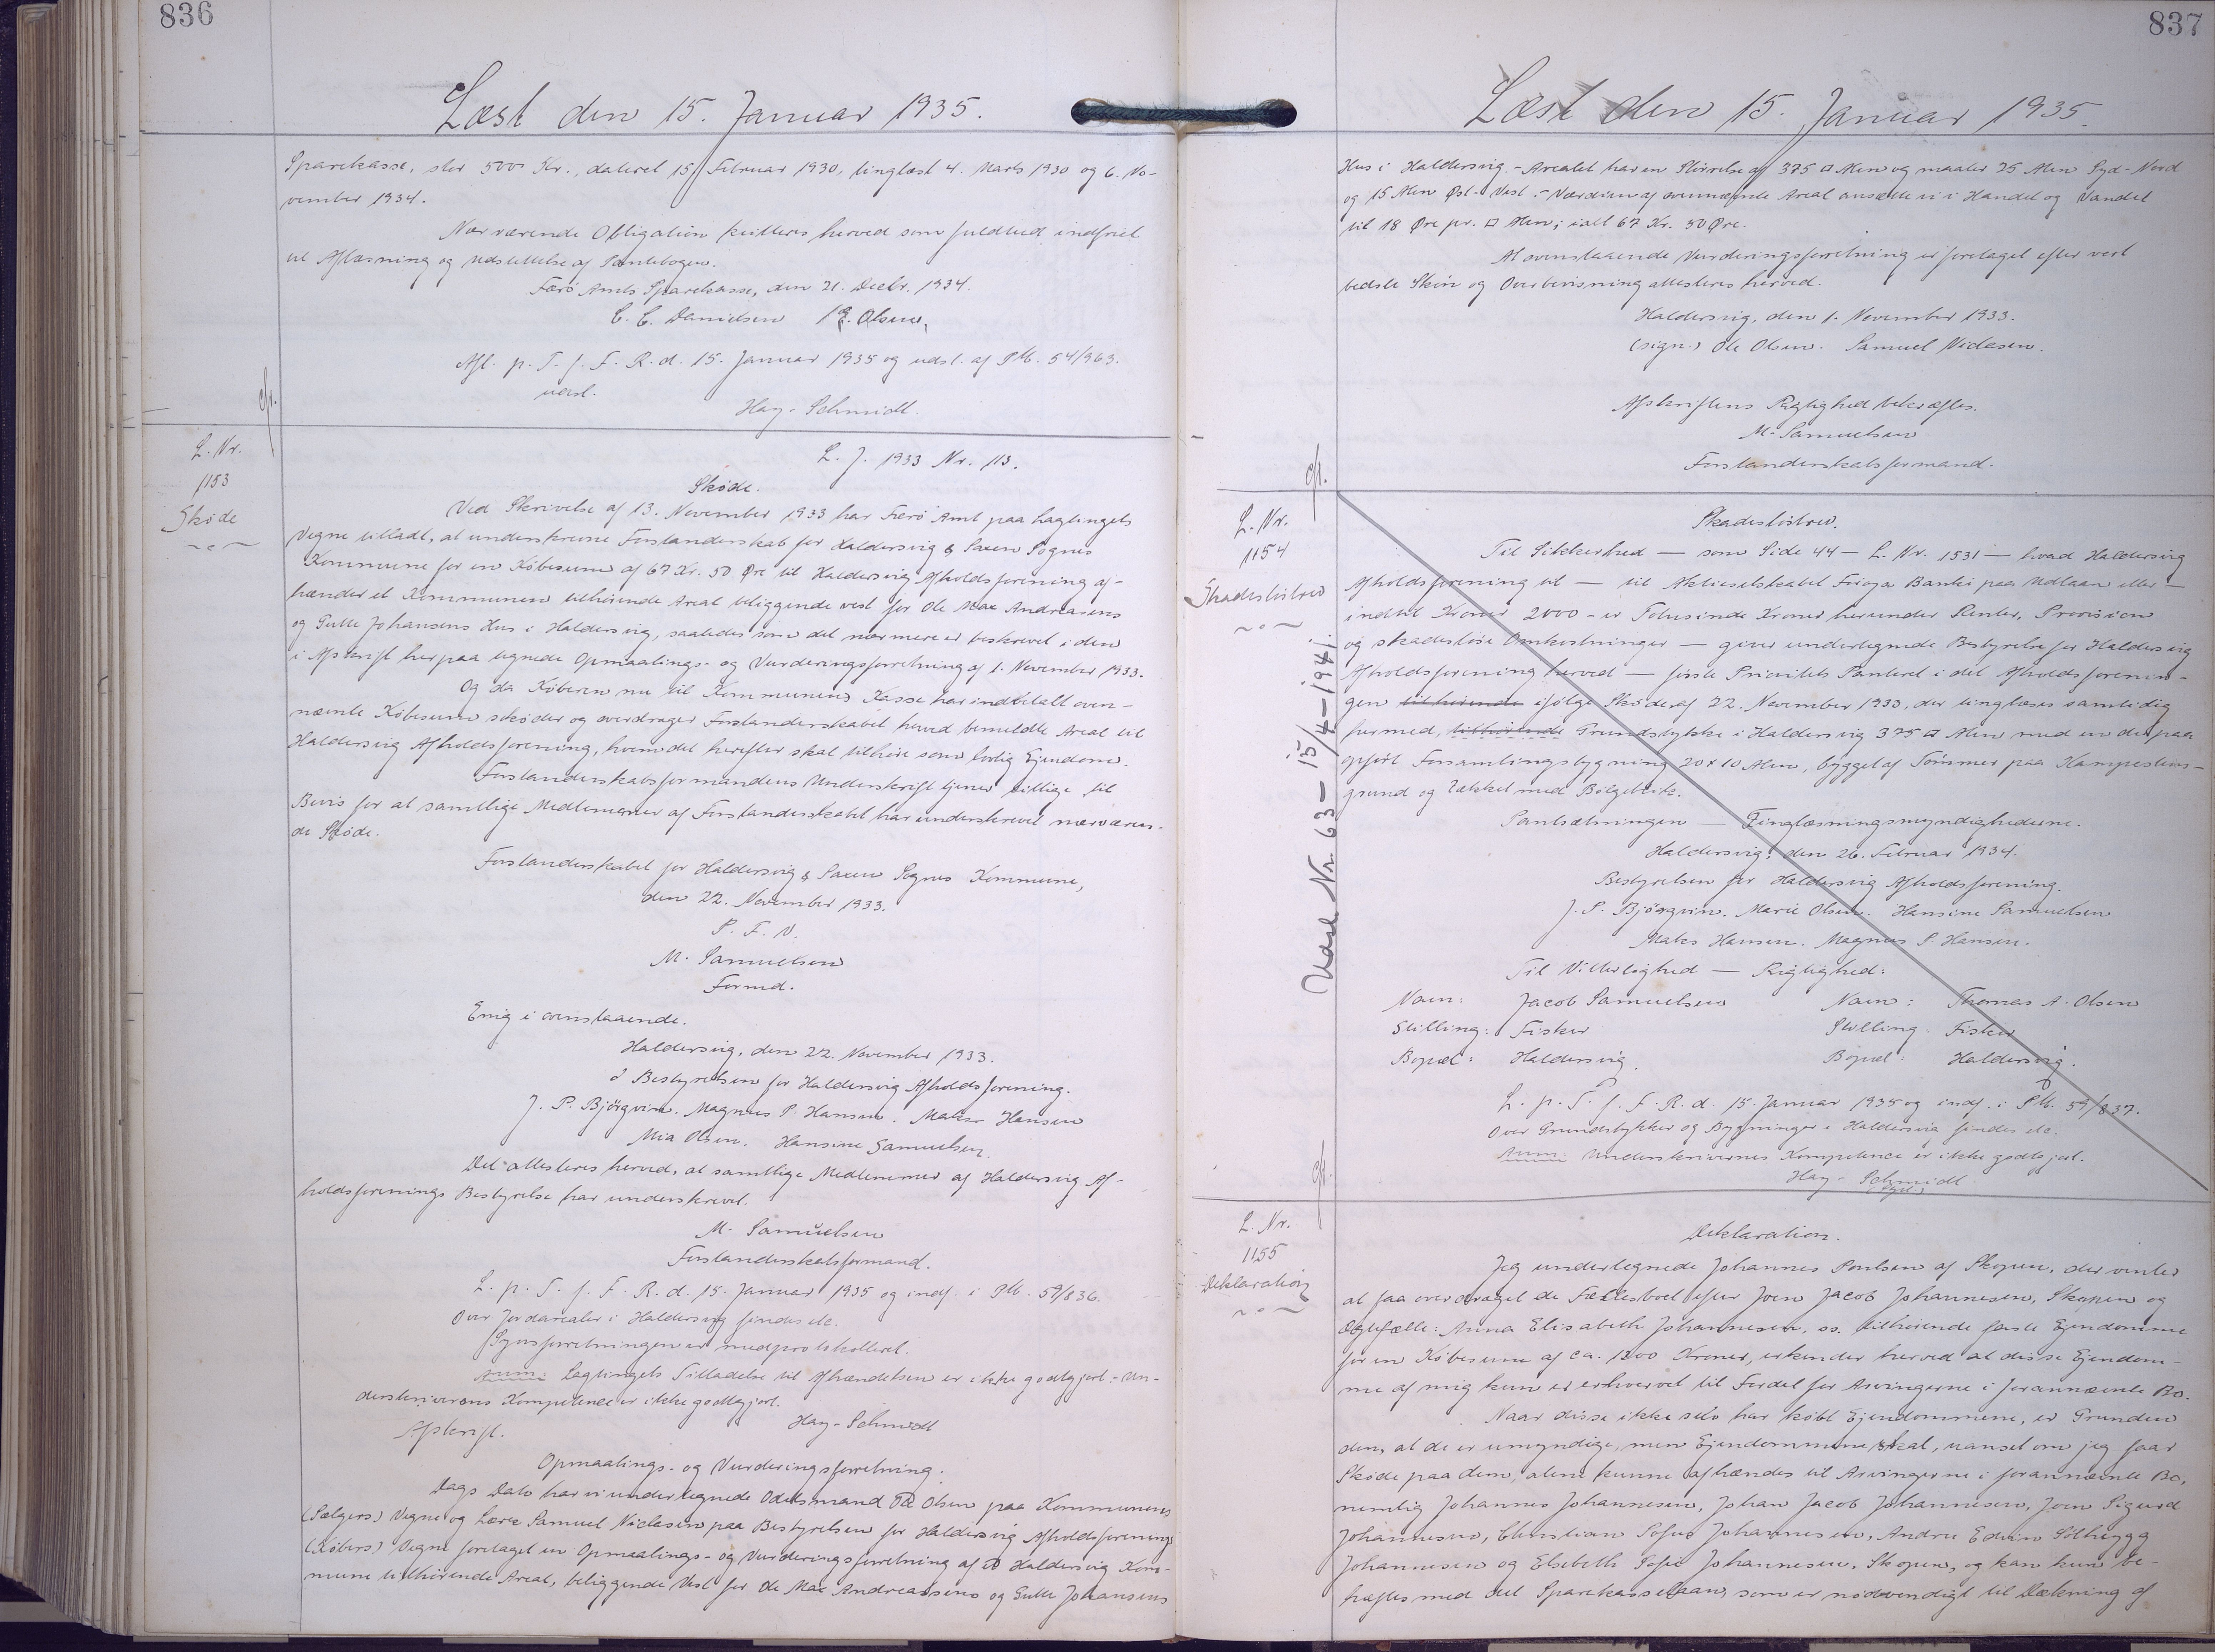 836
Læst den 15. Januar 1935.
Sparekasse, stor 5000 Kr., dateret 15 Februar 1930, tinglæst 4. Marts 1930 og 6. No-
vember 1934.
Nærværende Obligation kvitteres herved som fuldtud indfriet
til Aflæsning og Udslettelse af Pantebogen.
Færø Amts Sparekasse, den 21. Decbr. 1934.
C. C. Danielsen / E. Olsen,
Afl. p. T. f. F. R. d. 15. Januar 1935 og udsl. af P.M. 54/963.
udsl.
Hay-Schmidt.
cfr.
L. Nr.
1153
Skøde
L. J. 1933 Nr. 113.
Skøde.
Ved Skrivelse af 13. November 1933 har Færø Amt paa Lagtingets
Vegne tilladt, at underskrevne Forstanderskab for Haldersvig & Saxen Sognes
Kommune for en Købesum af 67 Kr. 50 Øre til Haldersvig Afholdsforening af-
hænder et Kommunen tilhørende Areal beliggende vest for Ole Mac Andreasens
og Gutte Johansens Hus i Haldersvig, saaledes som det nærmere er beskrevet i den
i Afskrift herpaa tegnede Opmaalings- og Vurderingsforretning af 1. November 1933.
Og da Køberen nu til Kommunens Kasse har indbetalt oven-
nævnte Købesum skøder og overdrager Forstanderskabet herved bemeldte Areal til
Haldersvig Afholdsforening, hvem det herefter skal tilhøre som lovlig Ejendom.
Forstanderskabsformandens Underskrift tjener tillige til
Bevis for at samtlige Medlemmer af Forstanderskabet har underskrevet nærværen-
de Skøde.
Forstanderskabet for Haldersvig & Saxen Sognes Kommune,
den 22. November 1933.
P. F. V.
M. Samuelsen
Formd.
Enig i ovenstaaende.
Haldersvig, den 22. November 1933.
Bestyrelsen for Haldersvig Afholdsforening.
J. P. Bjørgvin. Magnus P. Hansen. Maks Hansen
Mia Olsen. Hansine Samuelsen.
Det attesteres herved, at samtlige Medlemmer af Haldersvig Af-
holdsforenings Bestyrelse har underskrevet.
M. Samuelsen
Forstanderskabsformand.
L. p. T. f. F. R. d. 15. Januar 1935 og indf. i P.M. 59/836.
Over Jordarealer i Haldersvig findes etc.
Synsforretningen er medprotokolleret.
Anm: Lagtingets Tilladelse til Afhændelsen er ikke godtgjort. - Un-
derskriverens Kompetence er ikke godtgjort.
Hay-Schmidt
Afskrift.
Opmaalings- og Vurderingsforretning.
Dags Dato har vi undertegnede Odelsmand Ole Olsen paa Kommunens
(Sælgers) Vegne og Lærer Samuel Niclasen paa Bestyrelsen for Haldersvig Afholdsforenings
(Købers) Vegne foretaget en Opmaalings- og Vurderingsforretning af et Haldersvig Kom-
mune tilhørende Areal, beliggende Vest for Ole Mac Andreassens og Gutte Johansens
837
Læst den 15. Januar 1935.
Hus i Haldersvig. - Arealet har en Størrelse af 375 □ Alen og maaler 25 Alen Syd-Nord
og 15 Alen Øst-Vest. - Værdien af ovennævnte Areal ansætte vi i Handel og Vandel
til 18 Øre pr. □ Alen; ialt 67 Kr. 50 Øre.
At ovenstaaende Vurderingsforretning er foretaget efter vort
bedste Skøn og Overbevisning attesteres herved.
Haldersvig, den 1. November 1933.
(sign.) Ole Olsen. Samuel Niclasen.
Afskriftens Rigtighed bekræftes.
M. Samuelsen
Forstanderskabsformand.
cfr.
L. Nr.
1154
Skadesløsbrev
Udsl. Nr. 63 - 15/4-1941.
Skadesløsbrev.
Til Sikkerhed — som Side 44 — L. Nr. 1531 — hvad Haldersvig
Afholdsforening til — til Aktieselskabet Føroya Banki paa Udlaan eller —
indtil Kroner 2000 - er Totusinde Kroner herunder Renter, Provision
og skadesløse Omkostninger — giver undertegnede Bestyrelse for Haldersvig
Afholdsforening herved — første Prioritets Panteret i det Afholdsforenin-
gen tilhørende ifølge Skøde af 22. November 1933, der tinglæses samtidig
hermed, tilhørende Grundstykke i Haldersvig 375 □ Alen med en derpaa
opført Forsamlingsbygning 20 x 10 Alen, bygget af Tømmer paa Kampestens-
grund og Tækket med Bølgeblik.
Pantsætningen — Tinglæsningsmyndighederne.
Haldersvig, den 26. Februar 1934.
Bestyrelsen for Haldersvig Afholdsforening.
J. P. Bjørgvin. Marie Olsen. Hansine Samuelsen
Maks Hansen. Magnus P. Hansen.
Til Vitterlighed — Rigtighed:
Navn: Jacob Samuelsen Navn: Thomas A. Olsen
Stilling: Fisker Stilling: Fisker
Bopæl: Haldersvig. Bopæl: Haldersvig.
L. p. T. f. F. R. d. 15. Januar 1935 og indf. i P.M. 59/837.
Over Grundstykker og Bygninger i Haldersvig findes etc.
Anm: Underskrivernes Kompetence er ikke godtgjort.
Hay-Schmidt
cfr.
L. Nr.
1155
Deklaration
Deklaration.
Jeg undertegnede Johannes Poulsen af Skopun, der venter
at faa overdraget de Fællesboet efter Joen Jacob Johannesen, Skopun og
Ægtefælle: Anna Elisabeth Johannesen, ss. tilhørende faste Ejendomme
for en Købesum af ca. 1200 Kroner, erkender herved at disse Ejendom-
me af mig kun er erhvervet til Fordel for Arvingerne i forannævnte Bo.
Naar disse ikke selv har købt Ejendommene, er Grunden
den, at de er umyndige, men Ejendommene skal, uanset om jeg faar
Skøde paa dem, alene kunne afhændes til Arvingerne i forannævnte Bo,
nemlig Johannes Johannesen, Johan Jacob Johannesen, Joen Sigurd
Johannesen, Christian Sofus Johannesen, Andrea Edvin Solhegg
Johannesen og Elsebeth Sofie Johannesen, Skopun, og kan kun be-
hæftes med det Sparekasselaan, som er nødvendigt til Dækning af